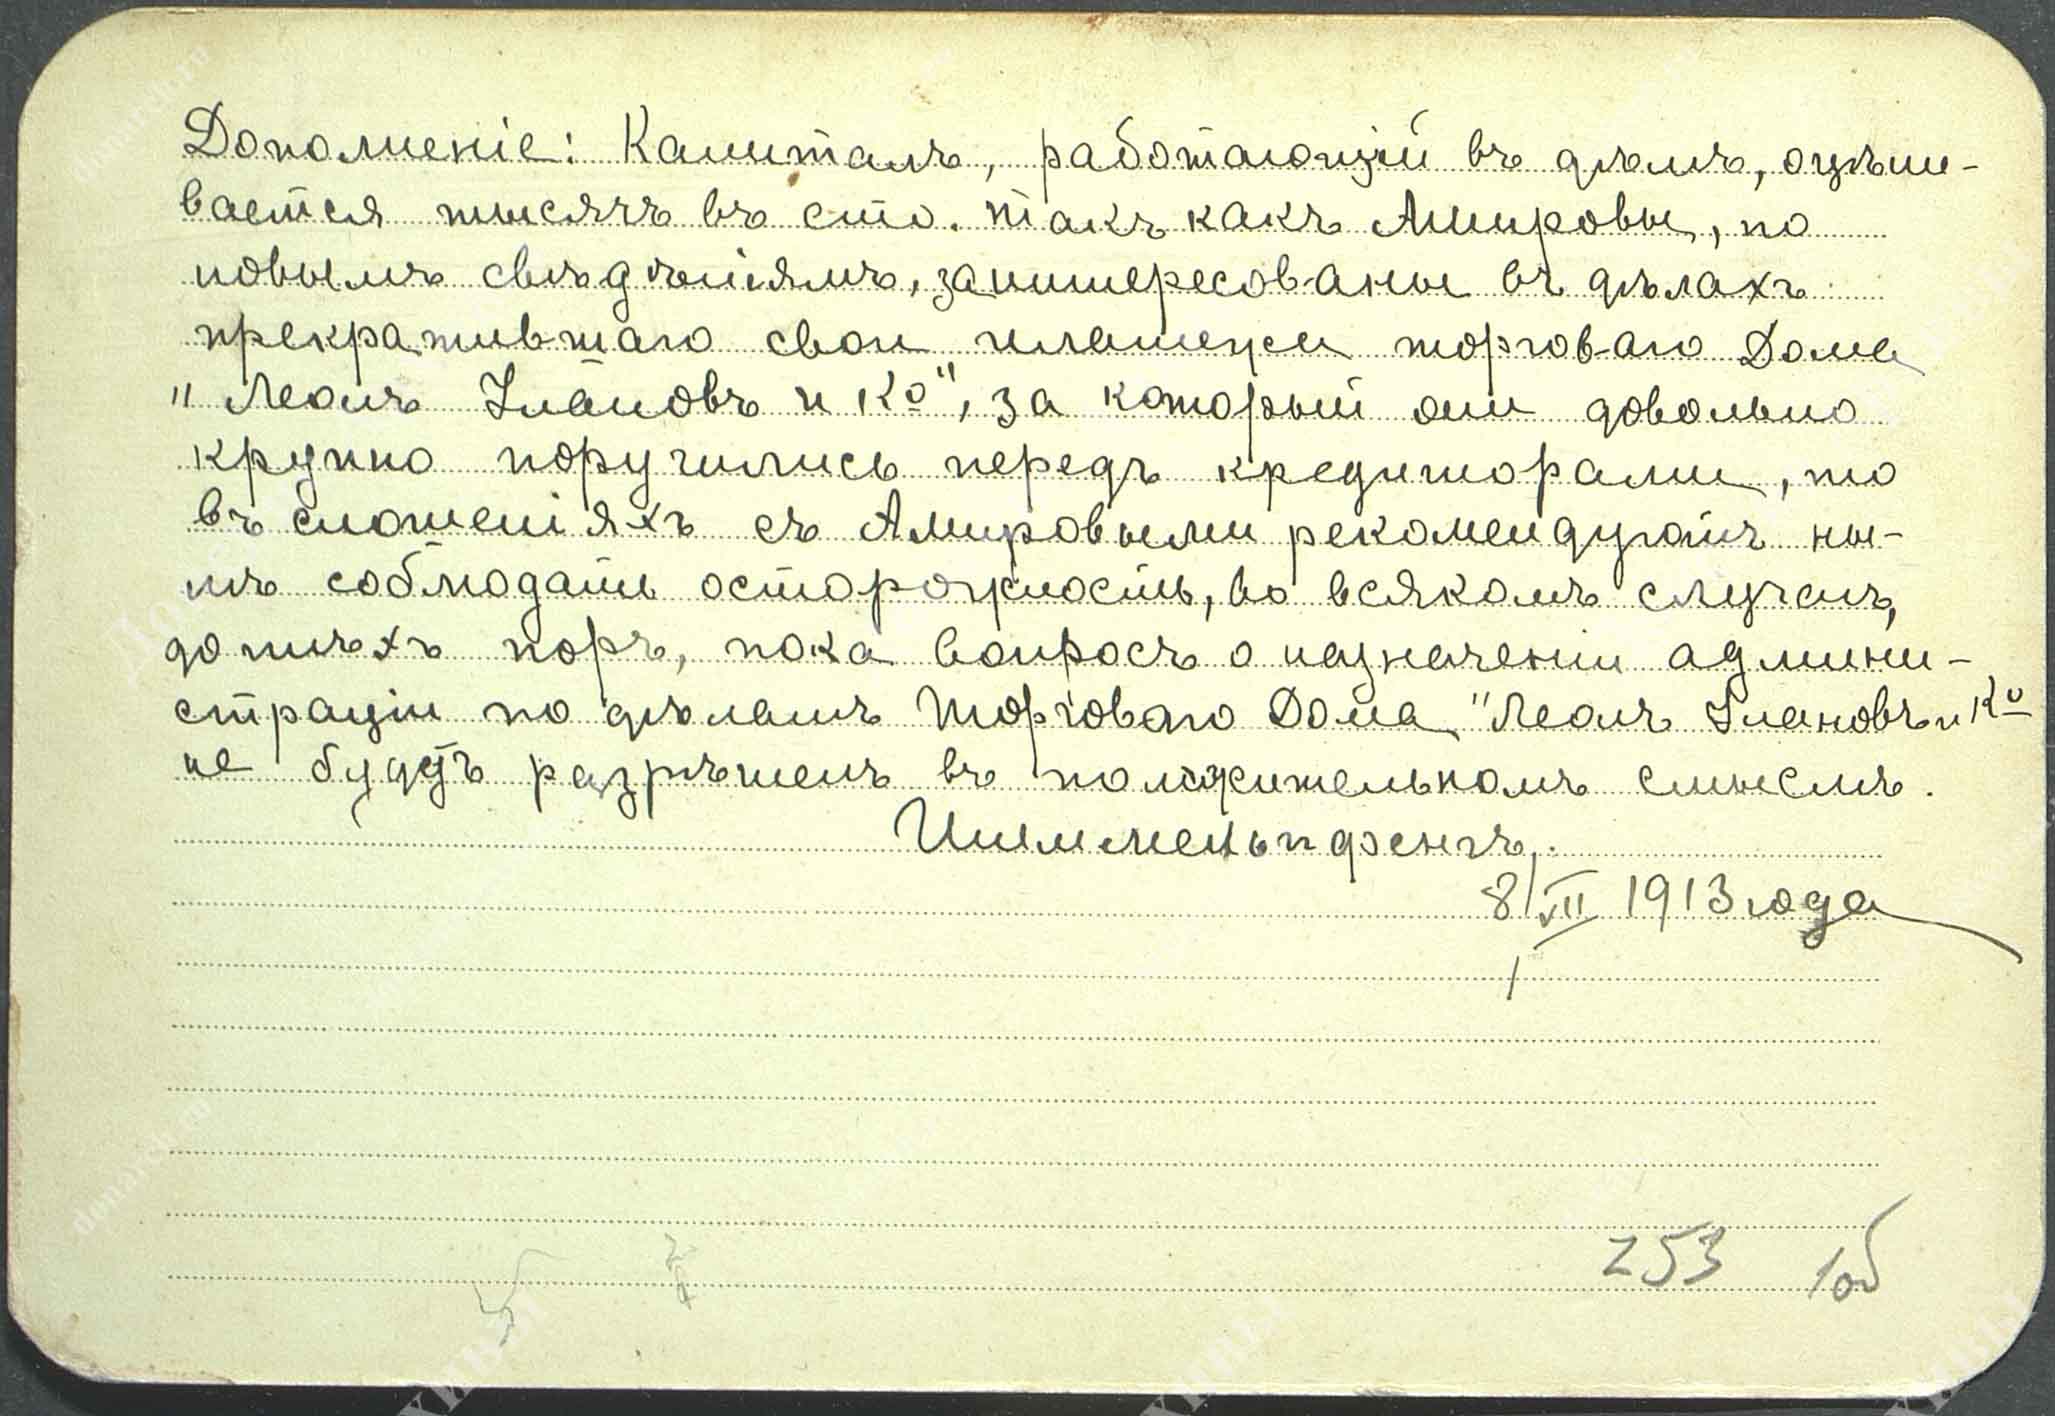 Дополненіе: Капиталъ, работающій въ дѣлѣ, оцѣни-
вается тысячъ въ сто. Такъ какъ Амировы, по
новымъ свѣдѣніямъ, заинтересованы въ дѣлахъ
прекратившаго свои платежи торговаго Дома
"Леонъ Улановъ и Кº", за который они довольно
крупно поручились передъ кредиторами, то
въ сношеніяхъ съ Амировыми рекомендуютъ ны-
нѣ соблюдать осторожность, во всякомъ случаѣ,
до тѣхъ поръ, пока вопросъ о назначеніи админи-
страціи по дѣламъ Торговаго Дома "Леонъ Улановъ и Кº
не будетъ разрѣшенъ въ положительномъ смыслѣ.
Шиммельпфенгъ.
8/VII 1913 года
253 1об